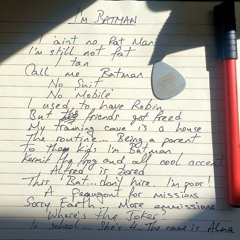 I'm BATMAN
I aint no Rat Man
I'm still not fat
I tan
Call me Batman
No Suit
No Mobile
I used to have Robin
But friends got freed
My training cave is a house
The routine.. Being a parent
To them kids I'm Batman
Kermit the frog and, all cool accent
Alfred is bored
This Bat... don't hire. I'm poor!
A penguon! for missions
Sorry Earth.. More emmissions
Where's the Joker?
In school... She's 4. The name is Alma